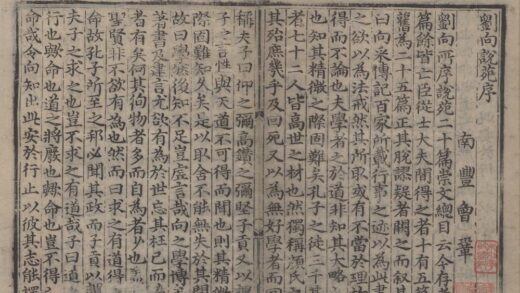 劉向說苑序
南豐曾鞏
劉向所序說苑二十篇崇文總目云今存
篇餘皆亡臣從士大夫間得之者十有五篇
舊為二十五篇正其脫謬疑者闕之而叙其
曰向采傳記百家所載行事之迹以為此書
之欲以為法戒然其所取或有不當於理
得而不論也夫學者之於道非知其大略
也知其精微之際固難矣孔子之徒三千其
者七十二人皆高世之材也然獨稱顏氏
其殆庶幾乎及回死又以為無好學者而回
稱夫子曰仰之彌高鑽之彌堅子貢又以謂
子之言性與天道不可得而聞也則其精
際固難知久矣是以取舍不能無失於其間
故曰學然後知不足豈虛言哉向之學博
著書及建言尤欲有為於世忘其枉己而為
者有矣何其徇物者多而自為者少也
聖賢非不欲有為也然而曰求之有道得
命故孔子所至之邦必聞其政而子貢以謂
夫子之求之也豈不求之有道哉子曰道
行也與命也道之將廢也與命也豈不得
命哉令向知出此安於行止以彼其志能擇